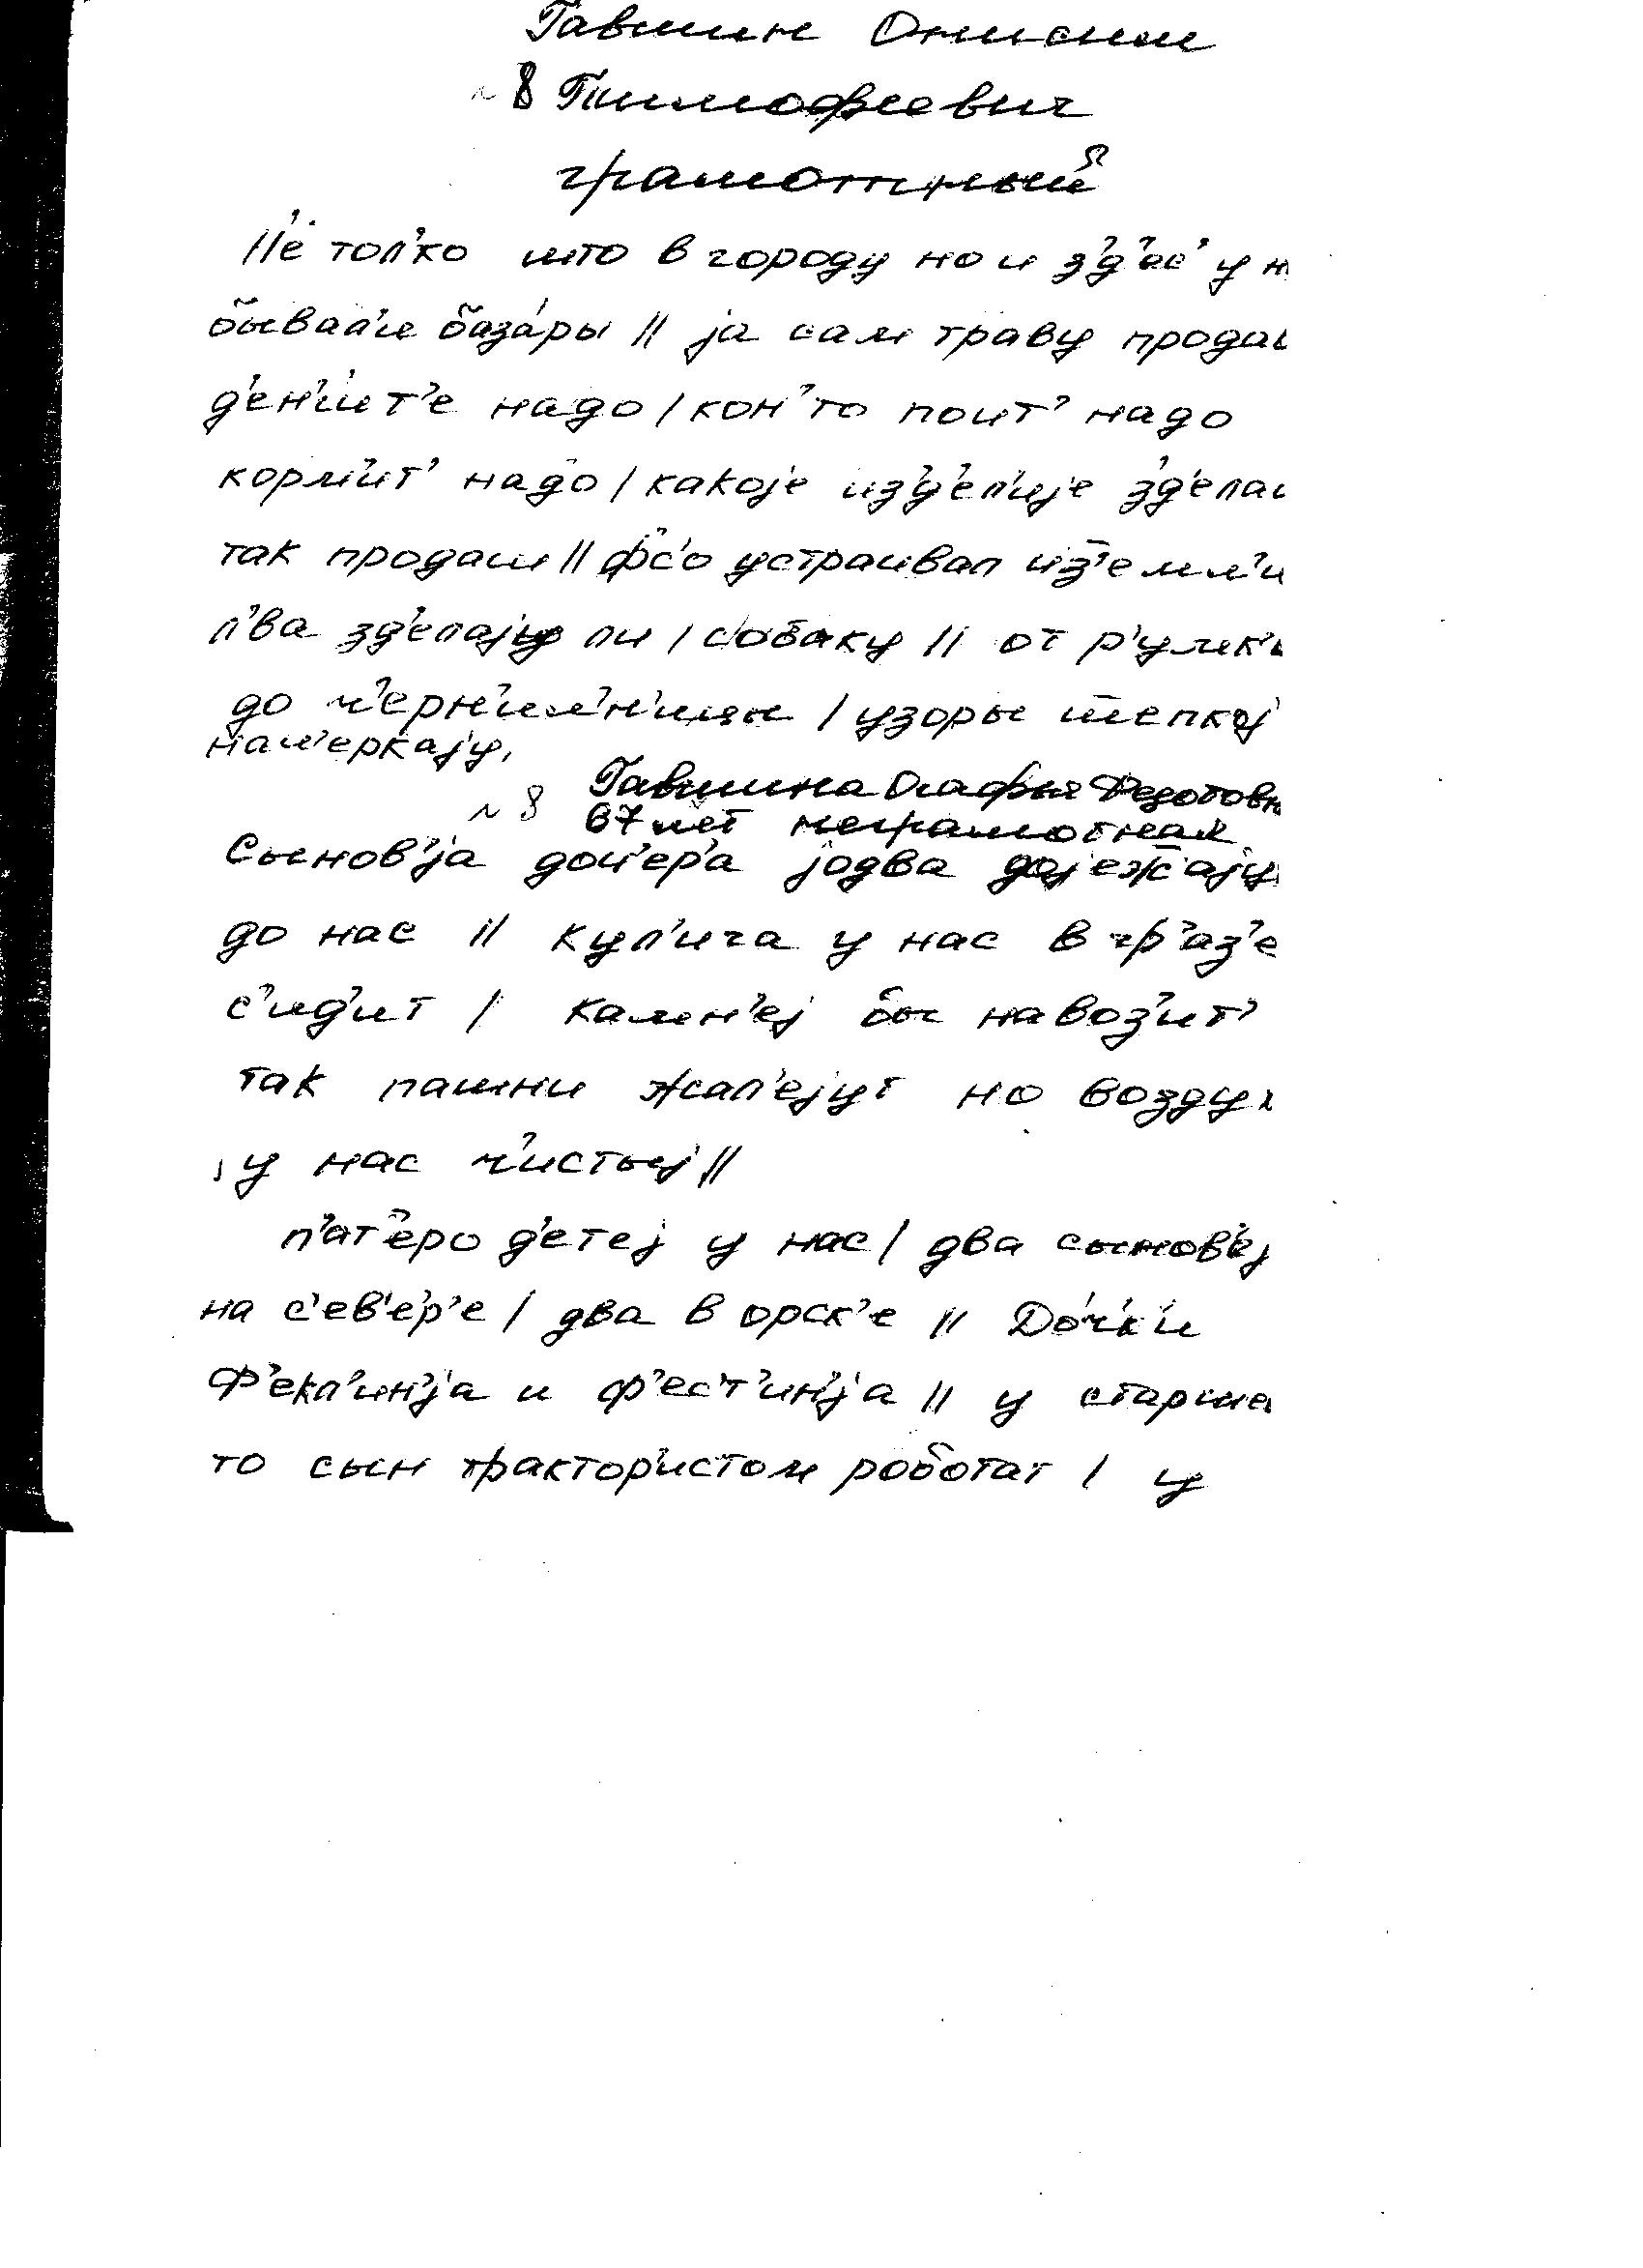 Гавшин Онисим
~ 8 Тимофеевич
грамотный
Н'е тол'ко што в городу но и з'д'ес' у н
бывал'и база́ры // jа сам траву прода
д'ен'иш т'е надо / кон'то поит' надо
корм'ит' надо / какоjе из'д'ел'иjе з'д'ела
так продаш // ф'с'о устраивал из'емл'и
л'ва з'д'елаjу ли / собаку // от р'умк'
до ч'ерн'ил'н'ицы / узоры щепкоj
нач'еркаjу,
Гавшина Федотовн
~ 8 67 лет неграмотная
Сынов'jа доч'ер'а jодва доjежаjу
до нас // Кул'ига у нас в гр'аз'е
с'ид'ит / камен'еj бы навоз'ит'
так пашни жал'еjут но возду
у нас ч'истыj //
п'ат'еро д'етеj у нас / два сынов'еj
на с'ев'ер'е / два в орск'е // До́ч'к'и
Ф'екл'ин'jа и ф'ес'т'ин'jа // у старше
то сын трактор'истом роботат / у